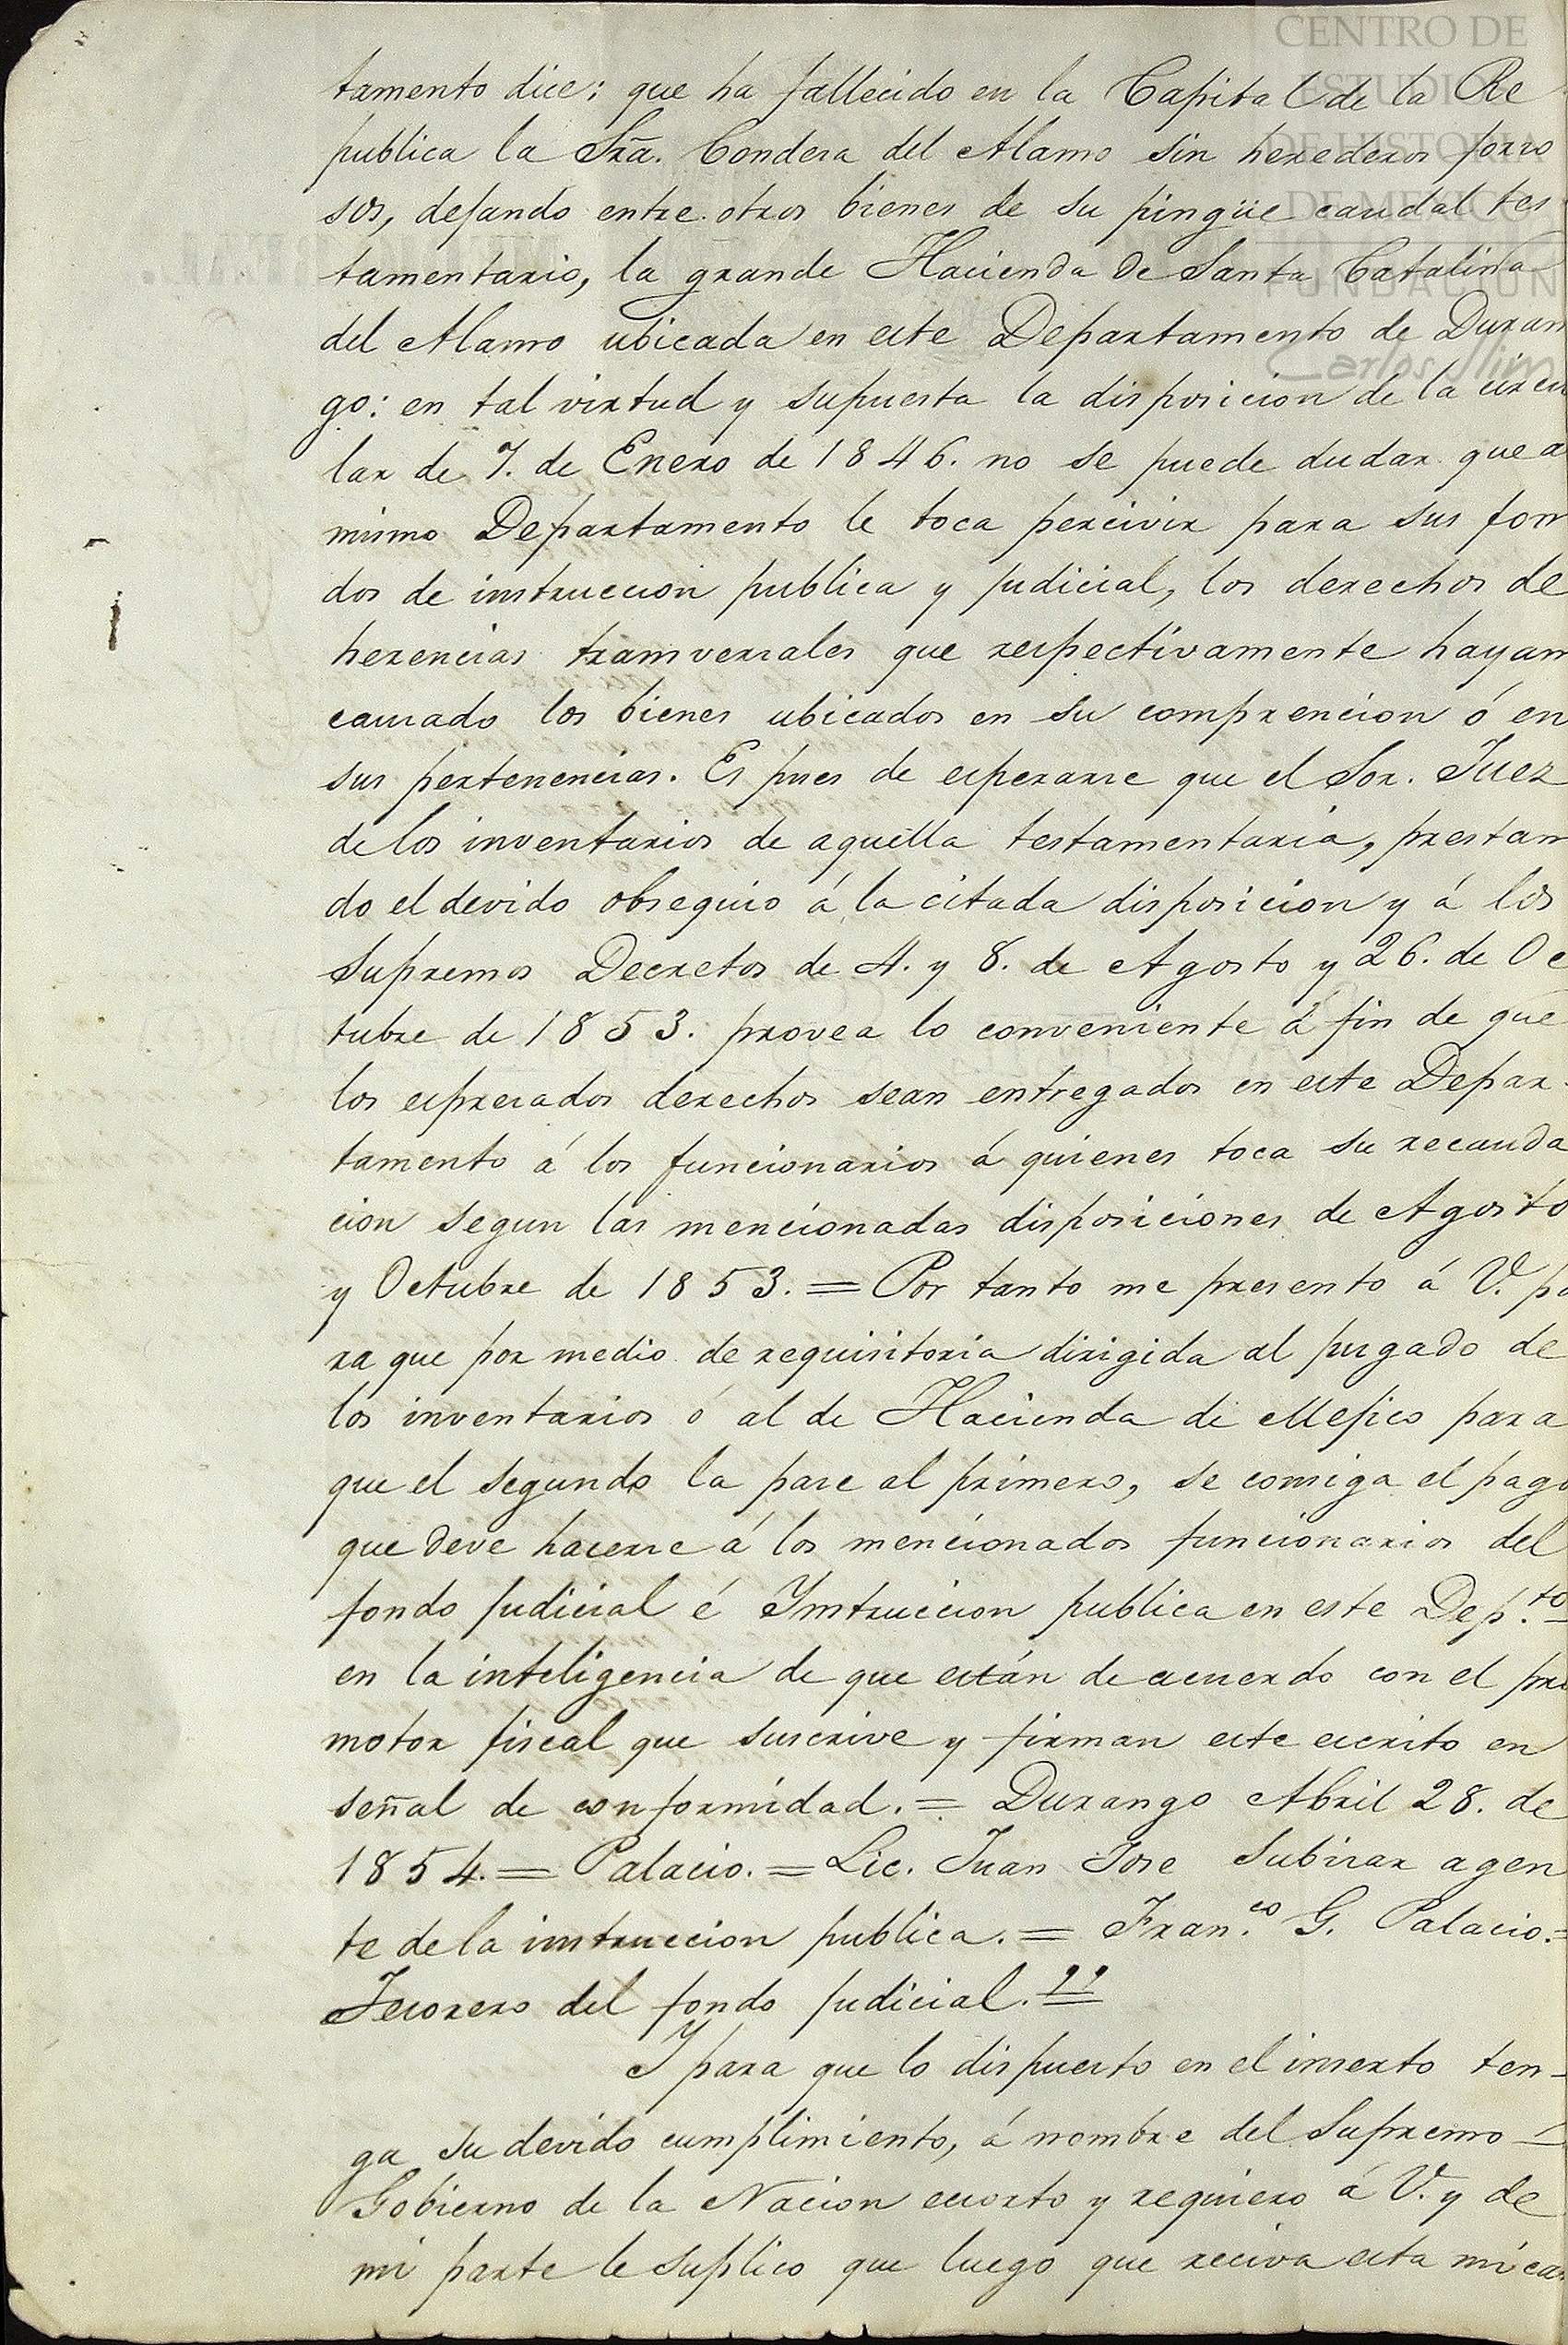 CENTRO DE
ESTUDIOS
DE HISTORIA
DE MEXICO
FUNDACION
Carlos Slim
tamento dice: que ha fallecido en la Capital de la Re
publica la Sra. Condesa del Alamo sin herederos forzo
sos, dejando entre otros bienes de su pingüe caudal tes
tamentario, la grande Hacienda de Santa Catalina
del Alamo ubicada en este Departamento de Duran
go: en tal virtud y supuesta la disposicion de la circu
lar de 7. de Enero de 1846. no se puede dudar que a
mismo Departamento le toca percivir para sus fon
dos de instruccion publica y judicial, los derechos de
herencias transversales que respectivamente hayan
causado los bienes ubicados en su comprencion ó en
sus pertenencias. Es pues de esperarse que el Sor. Juez
de los inventarios de aquella testamentaria, prestan
do el devido obsequio á la citada disposicion y á los
Supremos Decretos de 4. y 8. de Agosto y 26. de Oc
tubre de 1853. provea lo conveniente á fin de que
los espresados derechos sean entregados en este Depar
tamento á los funcionarios á quienes toca su recauda
cion segun las mencionadas disposiciones de Agosto
y Octubre de 1853. = Por tanto me presento á V. pa
ra que por medio de requisitoria dirigida al jusgado de
los inventarios ó al de Hacienda de Mejico para
que el segundo la pase al primero, se consiga el pago
que deve hacerse á los mencionados funcionarios del
fondo judicial é Instruccion publica en este Dep.to
en la inteligencia de que están de acuerdo con el pro
motor fiscal que suscrive y firman este escrito en
señal de conformidad. = Durango Abril 28. de
1854. = Palacio. = Lic. Juan Jose Subizar agen
te de la instruccion publica. = Fran.co G. Palacio. =
Tesorero del fondo judicial."
Y para que lo dispuesto en el inserto ten-
ga su devido cumplimiento, á nombre del Supremo
Gobierno de la Nacion exsorto y requiero á V. y de
mi parte le suplico que luego que reciva esta mi car